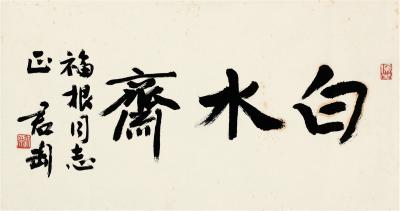 白水齋
福根同志
正 君匋